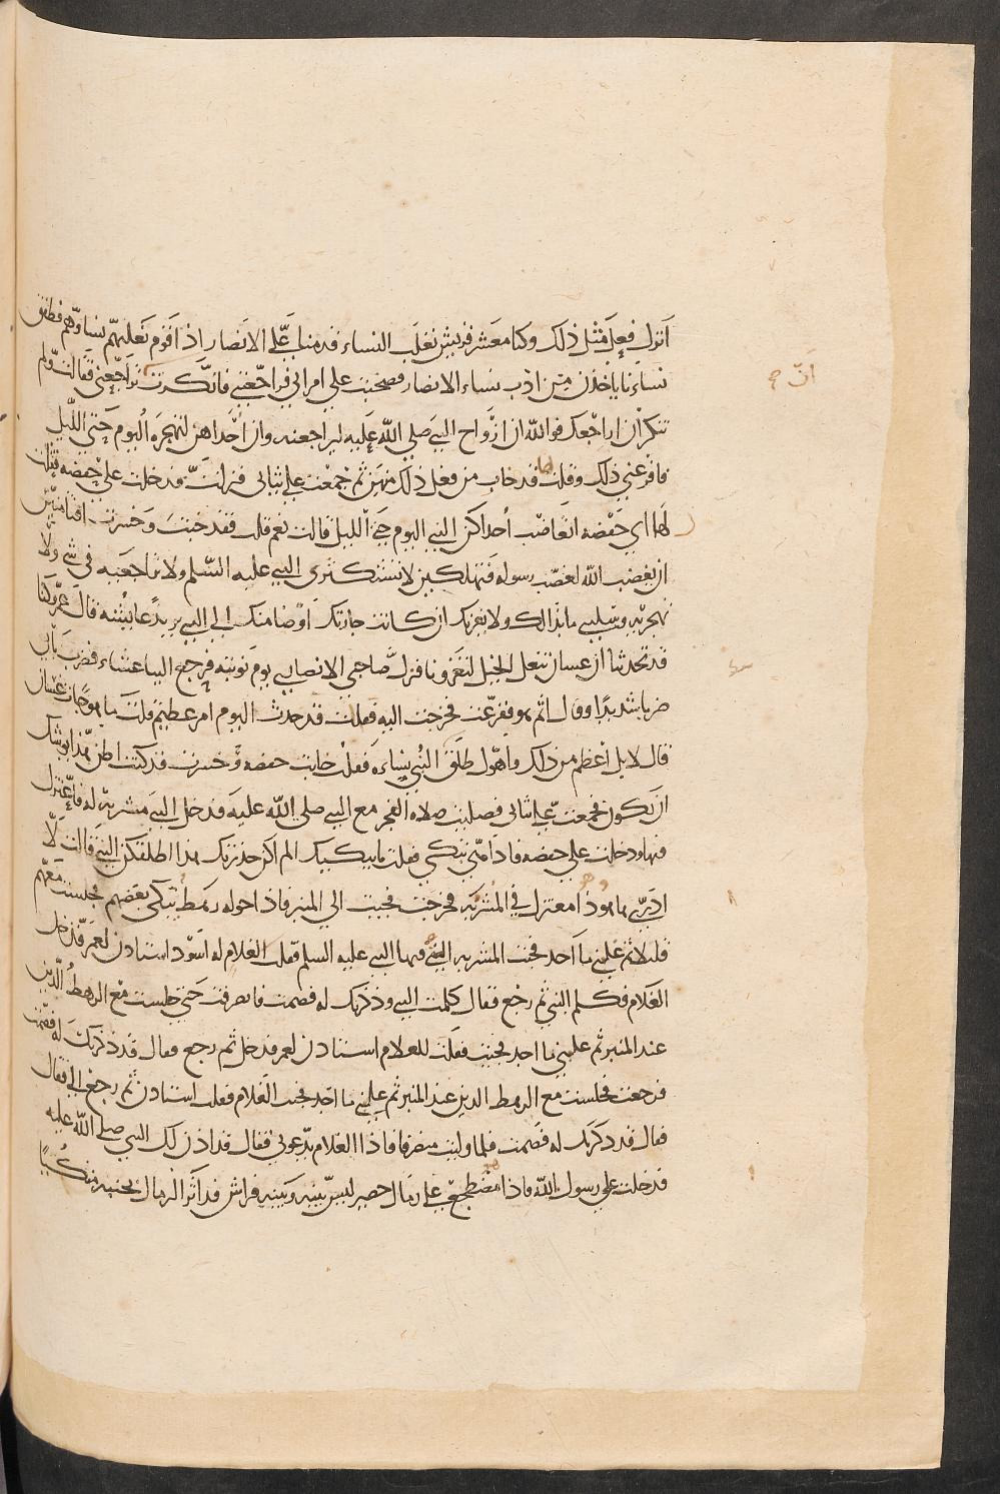 انزل فعل مثل ذلك وكنا معشر قريش نغلب النساء فلما قدمنا علي الانصار اذا قوم تغلبهم نساؤهم فطفق
نساءنا ياخذن من ادب نساء الانصار فصخبت علي امراتي فراجعتني فانكرت ان تراجعني فقالت ولم
تنكر ان اراجعك فوالله ان ازواج النبي صلي الله عليه ليراجعنه وان احداهن لتهجره اليوم حتي الليل
فافزعني ذلك وقلت لها قد خاب من فعل ذلك منهن ثم جمعت علي ثيابي فنزلت فدخلت علي حفصه فقلت
لها اي حفصه اتغاضب احداكن النبي اليوم حتي الليل قالت نعم قلت فقد خبت وخسرت افتامنين
ان يغضب الله لغضب رسوله فتهلكين لا تستكثري النبي عليه السلم ولا تراجعيه في شي ولا
تهجريه وسليني ما بدا لك ولا يغرنك ان كانت جارتك اوضا منك الي النبي يريد عايشه قال عمر وكنا
قد تحدثنا ان غسان تنعل الخيل لتغزونا فنزل صاحبي الانصاري يوم نوبته فرجع الينا عشاء فضرب بابي
ضربا شديدا وقال اثم هو ففزعت فخرجت اليه فقلت قد حدث اليوم امر عظيم قلت ما هو جات غسان
قال لا بل اعظم من ذلك واهول طلق النبي نساءه فقلت خابت حفصه وخسرت قد كنت اظن هذا يوشك
ان يكون فجمعت علي ثيابي فصليت صلاه الفجر مع النبي صلي الله عليه فدخل النبي مشربة له فاعتزل
فيها ودخلت علي حفصه فاذا هي تبكي فقلت ما يبكيك الم اكن حذرتك هذا اطلقكن النبي قالت لا
ادري ها هو ذا معتزل في المشربه فخرجت فجيت الي المنبر فاذا حوله رهط يبكي بعضهم فجلست معهم
قليلا ثم غلبني ما اجد فجيت المشربه التي فيها النبي عليه السلم فقلت لغلام له اسود استاذن لعمر فدخل
الغلام فكلم النبي ثم رجع فقال كلمت النبي وذكرتك له فصمت فانصرفت حتي جلست مع الرهط الذين
عند المنبر ثم غلبني ما اجد فجيت فقلت للغلام استاذن لعمر فدخل ثم رجع فقال قد ذكرتك له فصمت
فرجعت فجلست مع الرهط الذين عند المنبر ثم غلبني ما اجد فجيت الغلام فقلت استاذن ثم رجع الي فقال
فقال قد ذكرتك له فصمت فلما وليت منصرفا فاذا الغلام يدعوني فقال قد اذن لك النبي صلي الله عليه
فدخلت علي رسول الله فاذا هو مضطجع علي رمال حصير ليس بينه وبينه فراش قد اثر الرمال بجنبيه متكيا